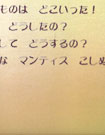 ものは どこいった！
どうしたの？
して どうするの？
な マンティス こしぬ